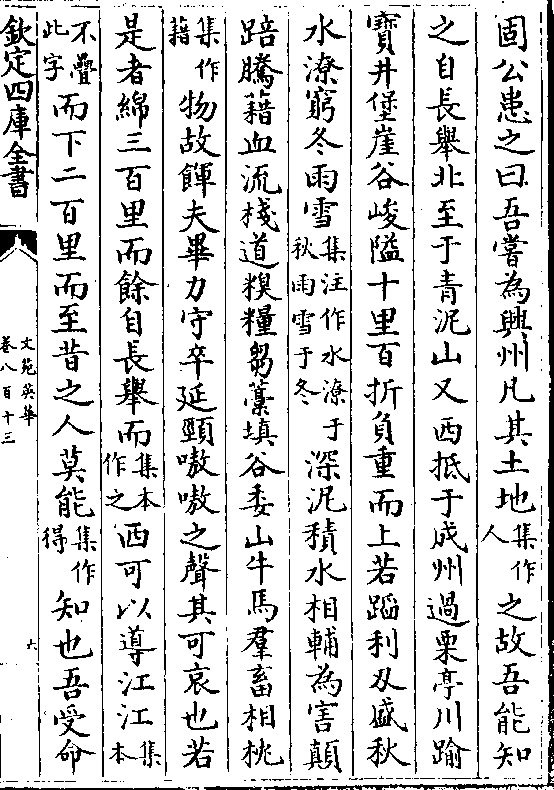 固公患之曰吾嘗為興州凡其土地集作人之故吾能知
之自長舉北至于青泥山又西抵于成州過栗亭川踰
寶井堡崖谷峻隘十里百折負重而上若蹈利刃盛秋
水潦窮冬雨雪集注作水潦于秋雨雪于冬深泥積水相輔為害顛
踣騰藉血流棧道糗糧芻藁填谷委山牛馬羣畜相枕
集作藉物故餫夫畢力守卒延頸嗷嗷之聲其可哀也若
是者綿三百里而餘自長舉而集本作之西可以導江江集本
不疊此字而下二百里而至昔之人莫能集作得知也吾受命
欽定四庫全書
文苑英華
卷八百十三
六